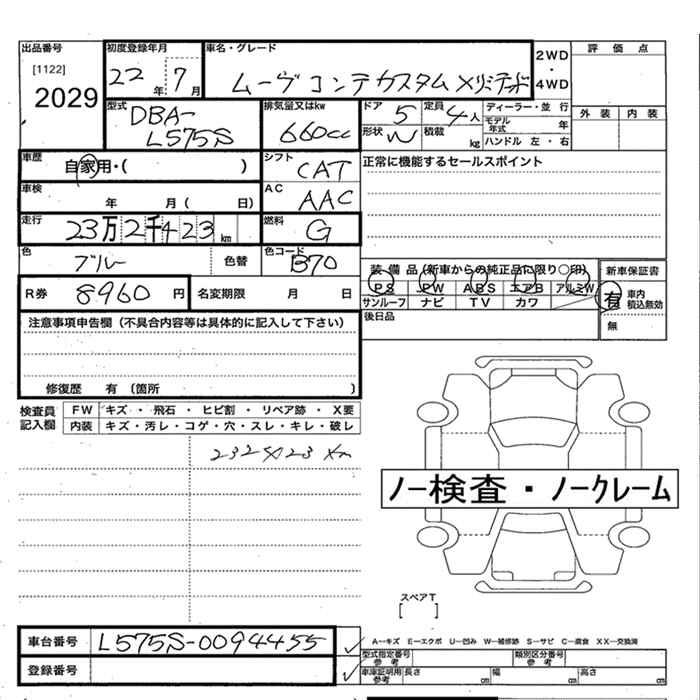 出品番号
[1122]
2029
初度登録年月
22年 7月
車名・グレード
ムーヴ コンテ カスタム メモリーエディション
2WD
・
4WD
評価点
外装 内装
型式
DBA-
L575S
排気量又はkw
660cc
ドア 5
定員 4人
形状 W
積載 kg
ディーラー・並行
モデル年式 年
ハンドル 左・右
車歴
自家用・( )
シフト
CAT
正常に機能するセールスポイント
車検
年 月( 日)
AC
AAC
走行
23万2千423km
燃料
G
色
ブルー
色替
色コード
B70
R券 8960円
名変期限 月 日
装備品(新車からの純正品に限り○印)
PS PW ABS エアB アルミW
サンルーフ ナビ TV カワ
新車保証書
有
車内積込無効
無
後日品
注意事項申告欄(不具合内容等は具体的に記入して下さい)
修復歴 有 (箇所 )
検査員記入欄
FW キズ・飛石・ヒビ割・リペア跡・X要
内装 キズ・汚レ・コゲ・穴・スレ・キレ・破レ
232423 km
ノー検査・ノークレーム
スペアT
[ ]
車台番号 L575S-0094455
登録番号
A-キズ E-エクボ U-凹み W-補修跡 S-サビ C-腐食 XX-交換済
型式指定番号 参考
類別区分番号 参考
車庫証明用 参考
長さ cm 幅 cm 高さ cm